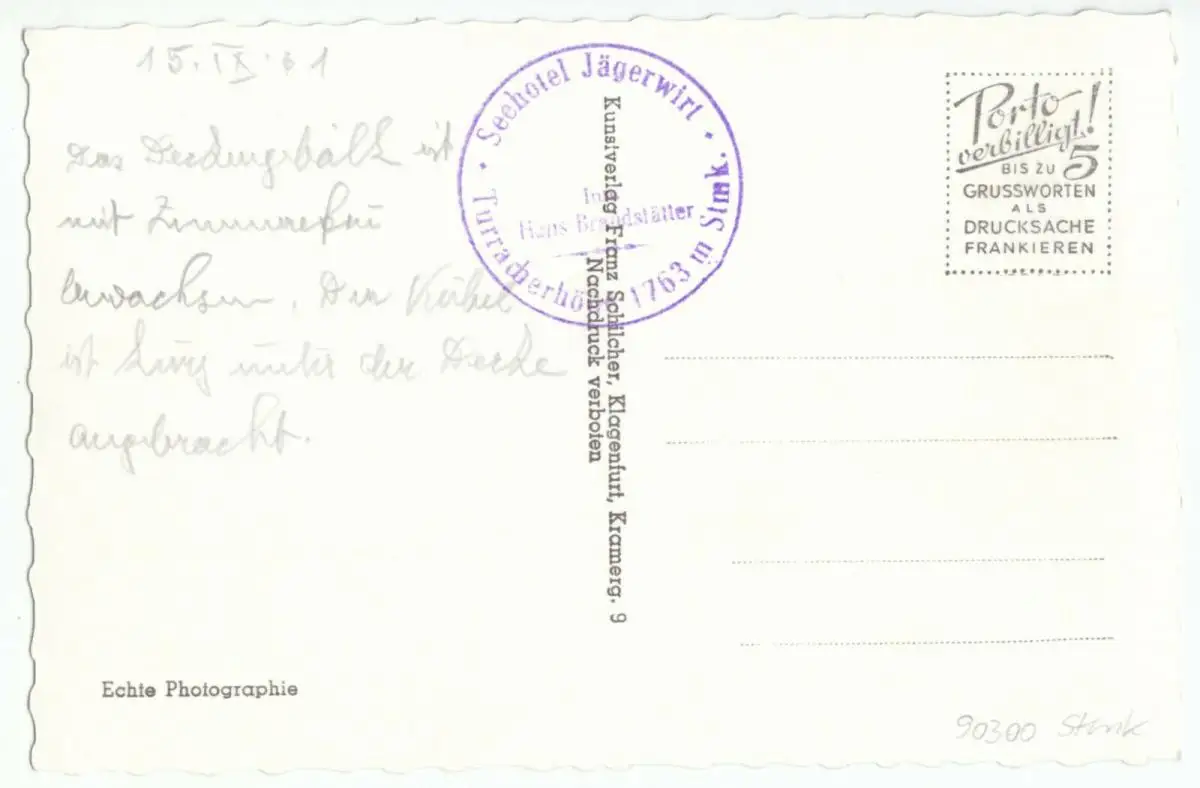 15.IX.61
Das Deckungsbalk ist
mit Zimmerefeu
bewachsen. Der Kübel
ist kurz unter der Decke
angebracht.
Echte Photographie
· Seehotel Jägerwirt ·
Inh.
Hans Brandstätter
Turracherhöhe 1763 m Stmk.
Kunstverlag Franz Schilcher, Klagenfurt, Kramerg. 9
Nachdruck verboten
Porto
verbilligt!
BIS ZU 5
GRUSSWORTEN
ALS
DRUCKSACHE
FRANKIEREN
90300 Stmk